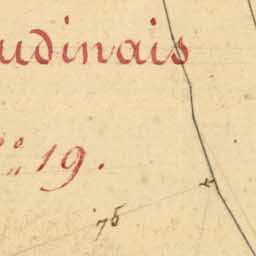 udinais
19.
75